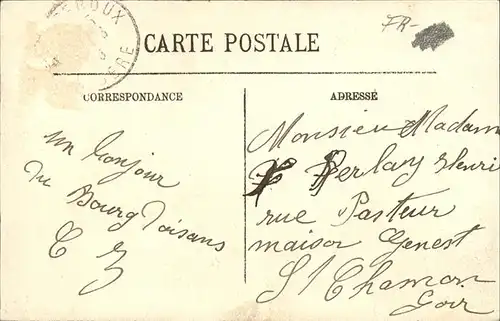 FR-
CARTE POSTALE
CORRESPONDANCE
ADRESSÉ
un bonjour
du Bourg d'oisans
C Z
Monsieur Madam
Perlay Henri
rue Pasteur
maison Genest
St Chamon
Loir